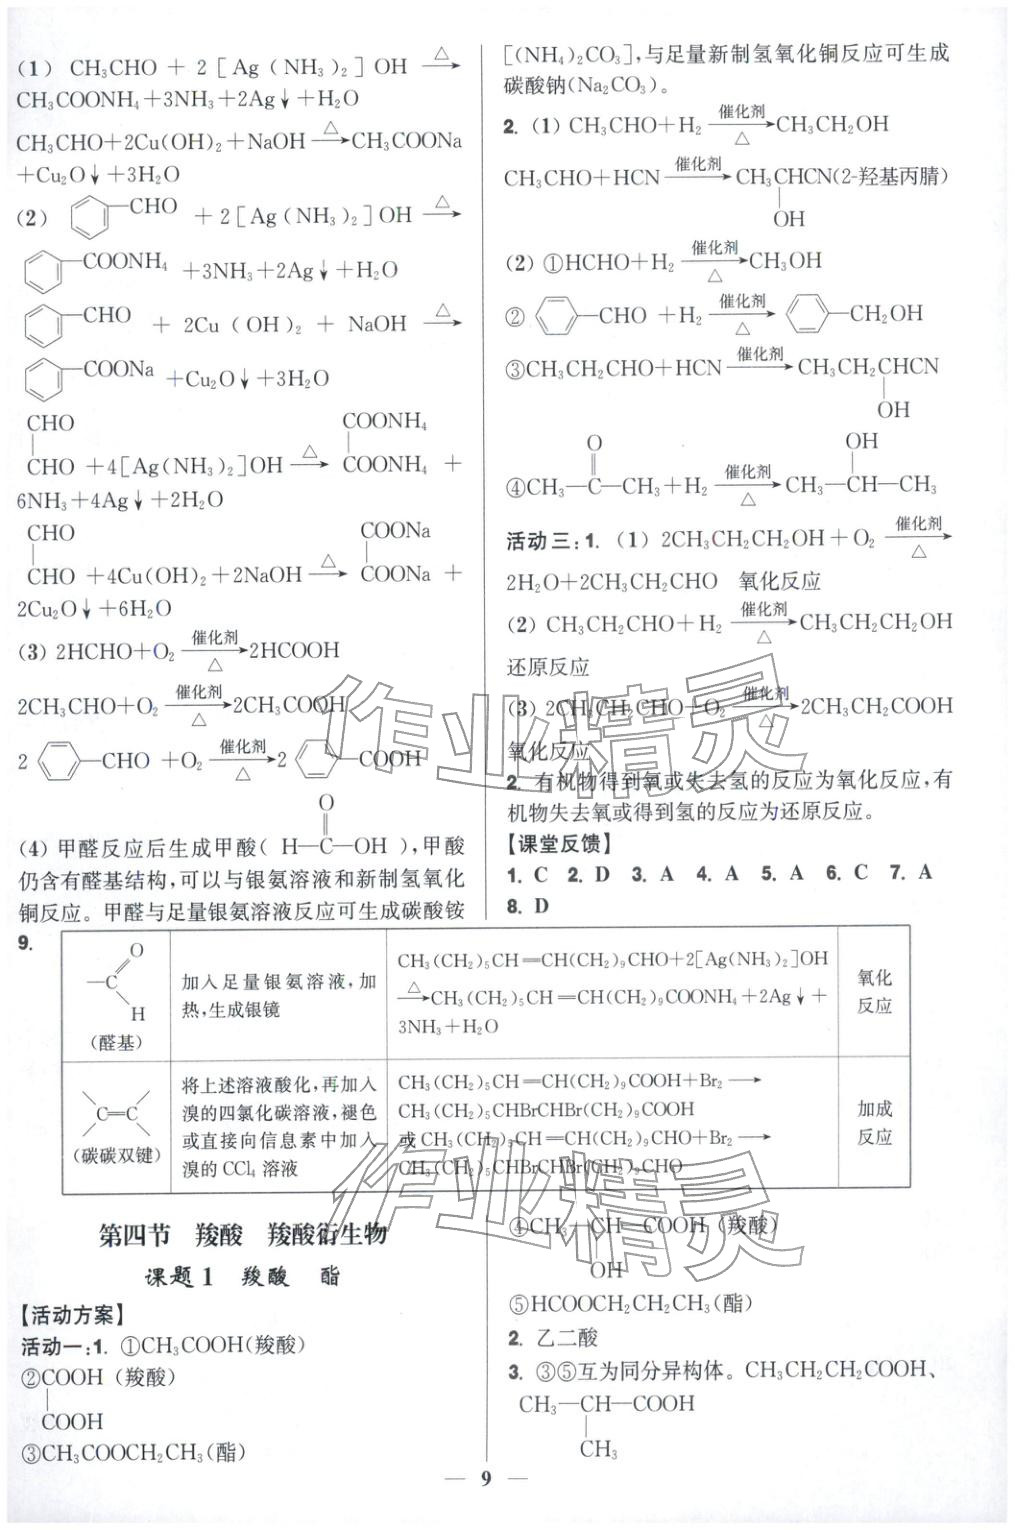 (1) CH₃CHO + 2 [Ag(NH₃)₂]OH —△→
CH₃COONH₄+3NH₃+2Ag↓+H₂O
CH₃CHO+2Cu(OH)₂+NaOH —△→CH₃COONa
+Cu₂O↓+3H₂O
(2) —CHO +2[Ag(NH₃)₂]OH —△→
—COONH₄ +3NH₃+2Ag↓+H₂O
—CHO + 2Cu(OH)₂ + NaOH —△→
—COONa +Cu₂O↓+3H₂O
CHO COONH₄
CHO +4[Ag(NH₃)₂]OH —△→ COONH₄ +
6NH₃+4Ag↓+2H₂O
CHO COONa
CHO +4Cu(OH)₂+2NaOH —△→ COONa +
2Cu₂O↓+6H₂O
(3) 2HCHO+O₂ —催化剂△→2HCOOH
2CH₃CHO+O₂ —催化剂△→2CH₃COOH
2 —CHO +O₂ —催化剂△→2 —COOH
O
(4) 甲醛反应后生成甲酸( H—C—OH ),甲酸
仍含有醛基结构,可以与银氨溶液和新制氢氧化
铜反应。甲醛与足量银氨溶液反应可生成碳酸铵
[(NH₄)₂CO₃],与足量新制氢氧化铜反应可生成
碳酸钠(Na₂CO₃)。
2. (1) CH₃CHO+H₂ —催化剂△→CH₃CH₂OH
CH₃CHO+HCN —催化剂→ CH₃CHCN(2-羟基丙腈)
OH
(2) ①HCHO+H₂ —催化剂△→CH₃OH
② —CHO +H₂ —催化剂△→ —CH₂OH
③CH₃CH₂CHO+HCN —催化剂→ CH₃CH₂CHCN
OH
O OH
④CH₃—C—CH₃+H₂ —催化剂△→ CH₃—CH—CH₃
活动三:1. (1) 2CH₃CH₂CH₂OH+O₂ —催化剂△→
2H₂O+2CH₃CH₂CHO 氧化反应
(2) CH₃CH₂CHO+H₂ —催化剂△→CH₃CH₂CH₂OH
还原反应
(3) 2CH₃CH₂CHO+O₂ —催化剂△→2CH₃CH₂COOH
氧化反应
2. 有机物得到氧或失去氢的反应为氧化反应,有
机物失去氧或得到氢的反应为还原反应。
【课堂反馈】
1. C 2. D 3. A 4. A 5. A 6. C 7. A
8. D
9.
O
—C
H
(醛基)
加入足量银氨溶液,加
热,生成银镜
CH₃(CH₂)₅CH═CH(CH₂)₉CHO+2[Ag(NH₃)₂]OH
—△→CH₃(CH₂)₅CH═CH(CH₂)₉COONH₄+2Ag↓+
3NH₃+H₂O
氧化
反应
C═C
(碳碳双键)
将上述溶液酸化,再加入
溴的四氯化碳溶液,褪色
或直接向信息素中加入
溴的CCl₄溶液
CH₃(CH₂)₅CH═CH(CH₂)₉COOH+Br₂ ⟶
CH₃(CH₂)₅CHBrCHBr(CH₂)₉COOH
或CH₃(CH₂)₅CH═CH(CH₂)₉CHO+Br₂ ⟶
CH₃(CH₂)₅CHBrCHBr(CH₂)₉CHO
加成
反应
第四节 羧酸 羧酸衍生物
课题1 羧酸 酯
【活动方案】
活动一:1. ①CH₃COOH(羧酸)
②COOH (羧酸)
COOH
③CH₃COOCH₂CH₃(酯)
④CH₃—CH—COOH (羧酸)
OH
⑤HCOOCH₂CH₂CH₃(酯)
2. 乙二酸
3. ③⑤互为同分异构体。CH₃CH₂CH₂COOH、
CH₃—CH—COOH
CH₃
9
作业精灵
作业精灵